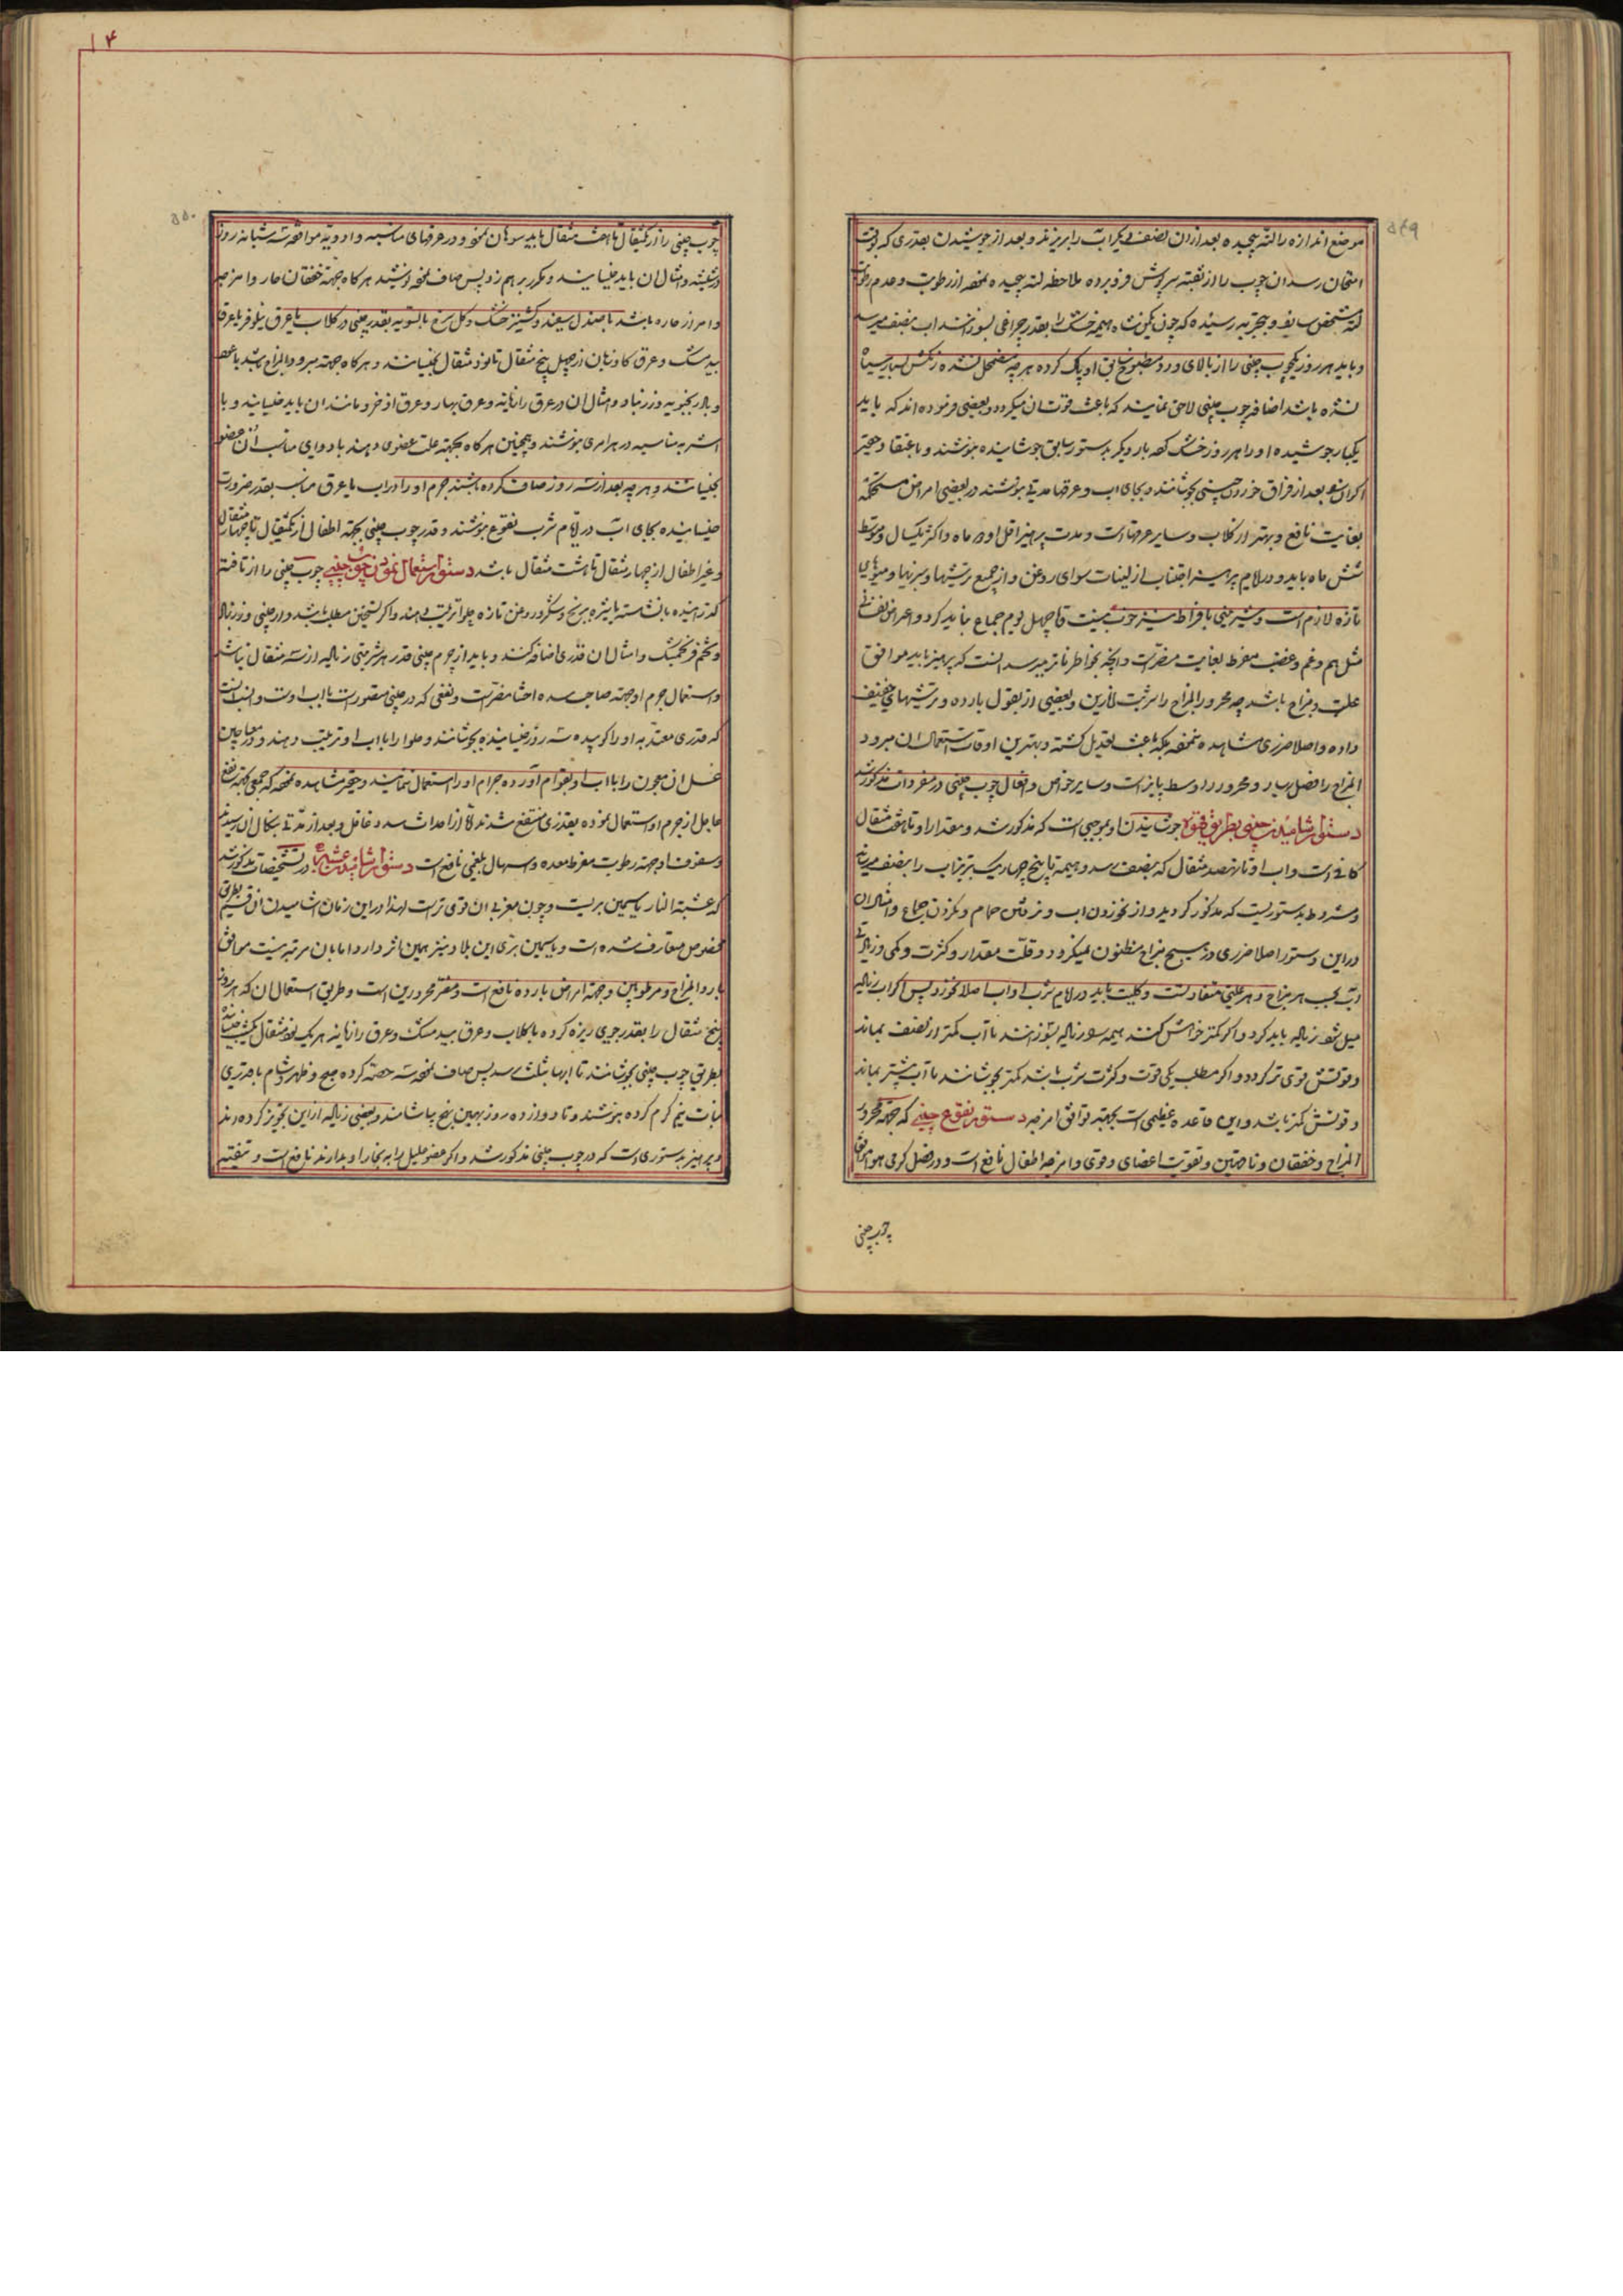 ۵۴۹
موضع اندازه را لته پیچیده بعد از ان نصف دیگر اب را بریزند و بعد از جوشیدن بقدری که وقت
امتحان رسد ان چوب را از ثقبه سرپوش فرو برده ملاحظه لته پیچیده نموده از رطوبت و عدم رطوبت
لته مشخص سازند و بتجربه رسیده که چون یکمن شاه هیمه خشک را بقدر چراغی بسوزانند اب بنصف میرسد
و باید هر روز یکچوب چینی را از بالای ورد مطبوخ سابق او پاک کرده هر چه مضمحل نشده و رنگش بسیار سیاه
نشده باشد اضافه چوب چینی لاحق نمایند که باعث قوت ان میگردد و بعضی فرموده اند که باید
یکبار جوشیده او را هر روز خشک کرده بار دیگر بدستور سابق جوشانیده بنوشند و باعتقاد حقیر
اکر ان بعد از فراق خوردن چینی بجوشانند و بجای اب و عرقها مدتی بنوشند در بعضی امراض مستحکمه
بغایت نافع و بهتر از کلاب و سایر عرقهاست و مدت پرهیز اقل او دو ماه و اکثر یکسال و متوسط
شش ماه باید و در ایام پرهیز اجتناب از لبنیات سوای روغن و از جمیع ترشیها و سبزیها و میوهای
تازه لازم است و شیرینی بافراط نیز خوب نیست و تا چهل یوم جماع نباید کرد و اعراض نفسانی
مثل هم و غم و غضب مفرط بغایت مضر است و انچه بخاطر فاتر میرسد انست که پرهیز باید موافق
علت و مزاج باشد چه محرور المزاج را شربت نارین و بعضی از بقول بارده و ترشیهای خفیف
داده و اصلا ضرری مشاهده ننموده بلکه باعث تعدیل کشته و بهترین اوقات استعمال ان مبرود
المزاج را فصل بهار و محرور را اوسط پاییز است و سایر خواص و افعال چوب چینی در مفردات مذکور شد
دستور اشامیدن چینی بطریق قهوه جوشانیدن او بموجبی است که مذکور شد و مقدار او تا هفت مثقال
کافی است و اب او تا نهصد مثقال که بنصف رسد و هیمه تا پنج چهاریک تبریز اب را بنصف میرساند
و مشروط بدستوریست که مذکور کردید و از نخوردن اب و نرفتن حمام و نکردن جماع و امثال ان
در این دستور اصلا ضرری در هیچ مزاج مظنون نمیکردد و قلت مقدار و کثرت و کمی و زیادتی
اب بحسب هر مزاج و هر علتی متفاوتست و کلیت باید در ایام شرب او اب اصلا نخورد پس اکر اب زیاده
میل شود زیاده باید کرد و اکر کمتر خواهش کنند هیمه زیاده بسوزانند تا اب کمتر از نصف بماند
و قوتش قوی تر کردد و اکر مطلب یکی قوت و کثرت شرب باشد کمتر بجوشانند تا اب بیشتر بماند
و قوتش کمتر باشد و این قاعده عظیمی است بجهة توافق امزجه دستور نقوع چینی که جهة محرور
المزاج و خفقان و ناقهین و تقویت اعضای و قوی و امزجه اطفال نافع است و در فصل کرمی هوا موافق
چوب چینی
۱۴
۵۵۰
چوب چینی را از یکمثقال تا هفت مثقال باید سوهان نموده و در عرقهای مناسبه و ادویه موافقه سه شبانه روز
در شیشه و امثال ان باید خیسانند و مکرر برهم زد پس صاف نموده نوشند هرکاه جهة خفقان حار و امزجه
و امراض حاره باشد با صندل سفید و کشنیز خشک و کل سرخ بالسویه بقدر چینی در کلاب یا عرق نیلوفر یا عرق
بیدمشک و عرق کاوزبان از چهل پنج مثقال تا نود مثقال بخیسانند و هرکاه جهة مبرود المزاج باشد با
و بادرنجبویه و زرنباد و امثال ان در عرق رازیانه و عرق بهار و عرق اذخر و مانند ان باید خیسانید و با
اشربه مناسبه در هر امری بنوشند و همچنین هرکاه بجهة علت عضوی دهند با دوای مناسب ان عضو
بخیسانند و هر چه بعد از سه روز صاف کرده باشند جرم او را در اب یا عرق مناسب بقدر ضرورت
خیسانیده بجای اب در ایام شرب نقوع بنوشند و قدر چوب چینی بجهة اطفال از یکمثقال تا چهار مثقال
و غیر اطفال از چهار مثقال تا هشت مثقال باشد دستور استعمال نمودن چوب چینی چوب چینی را از تافته
کذرانیده با نشاسته یا شیره برنج و شکر و روغن تازه حلوا ترتیب دهند و اکر تسخین مطلب باشد دارچینی و زرنباد
و تخم فرنجمشک و امثال ان قدری اضافه کنند و باید از جرم چینی قدر هر شربتی زیاده از سه مثقال نباشد
و استعمال جرم او جهة صاحب سده احشا مضر است و نفعی که در چینی متصور است با اب اوست و انسب انست
که قدری معتد به او را کوبیده سه روز خیسانیده بجوشانند و حلوا را با اب او ترتیب دهند و در معاجین
عسل ان معجون را با اب او بقوام آورده جرام او را استعمال ننمایند و حقیر مشاهده نموده که جمعی بجهة نفع
عاجل از جرم او استعمال نموده بقدری منتفع شدند لا از احداث سده غافل و بعد از مدتی بنکال ان رسیدند
و سفوف او جهة رطوبت مفرط معده و اسهال بلغمی نافع است دستور اشامیدن عشبه در تشخیصات مذکور شد
که عشبة النار یاسمین بریست و چون مغربی ان قوی تر است لهذا در این زمان اشامیدن ان قسم بطریق
مخصوص متعارف شده است و یاسمین بری این بلاد نیز همین اثر دارد اما بان مرتبه نیست موافق
بارد المزاج و مرطوبین و جهة امراض بارده نافع است و مضر محرورین است و طریق استعمال ان که هر روز
پنج مثقال را بقدر جوی ریزه کرده با کلاب و عرق بیدمشک و عرق رازیانه هر یک نود مثقال یکشب خیسانیده
بطریق چوب چینی بجوشانند تا ابها بثلث رسد پس صاف نموده سه حصه کرده صبح و ظهر و شام با قدری
نبات نیم کرم کرده بنوشند و تا دوازده روز بهمین نهج بیاشامند و بعضی زیاده از این تجویز کرده اند
و پرهیز بدستوری است که در چوب چینی مذکور شد و اکر عضو علیل را به بخار او بدارند نافع است و تنقیه